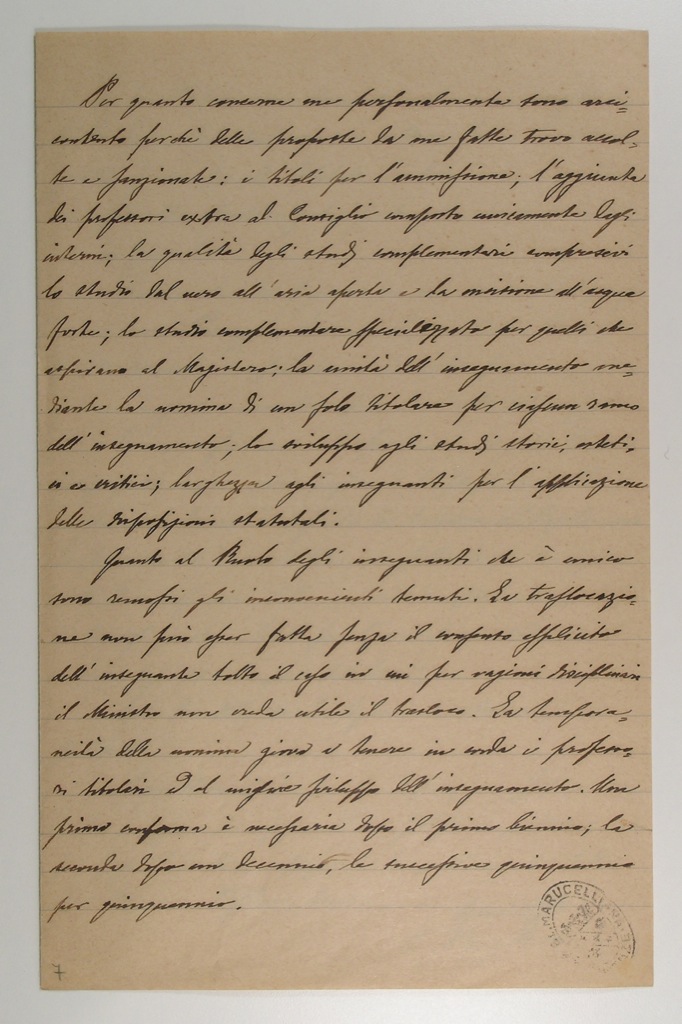 Per quanto concerne me personalmente sono arci-
contento perchè delle proposte da me fatte trovo accol-
te e sanzionate: i titoli per l'ammissione; l'aggiunta
dei professori extra al Consiglio composto unicamente degli
interni; la qualità degli studj complementari compresivi
lo studio dal vero all'aria aperta e la incisione all'acqua
forte; lo studio complementare specializzato per quelli che
aspirano al Magistero; la unità dell'insegnamento me-
diante la nomina di un solo titolare per ciascun ramo
dell'insegnamento; lo sviluppo agli studj storici, esteti-
ci e critici; larghezza agli insegnanti per l'applicazione
delle disposizioni statutali.
Quanto al Ruolo degli insegnanti che è unico
sono rimossi gli inconvenienti temuti. La traslocazio-
ne non può esser fatta senza il consenso esplicito
dell'insegnante tolto il caso in cui per ragioni disciplinari
il Ministro non creda utile il trasloco. La tempora-
neità della nomina giova a tenere in corda i professo-
ri titolari ed al migliore sviluppo dell'insegnamento. Una
prima conferma è necessaria dopo il primo biennio; la
seconda dopo un decennio, le successive quinquennio
per quinquennio.
MARUCELLIANA
7